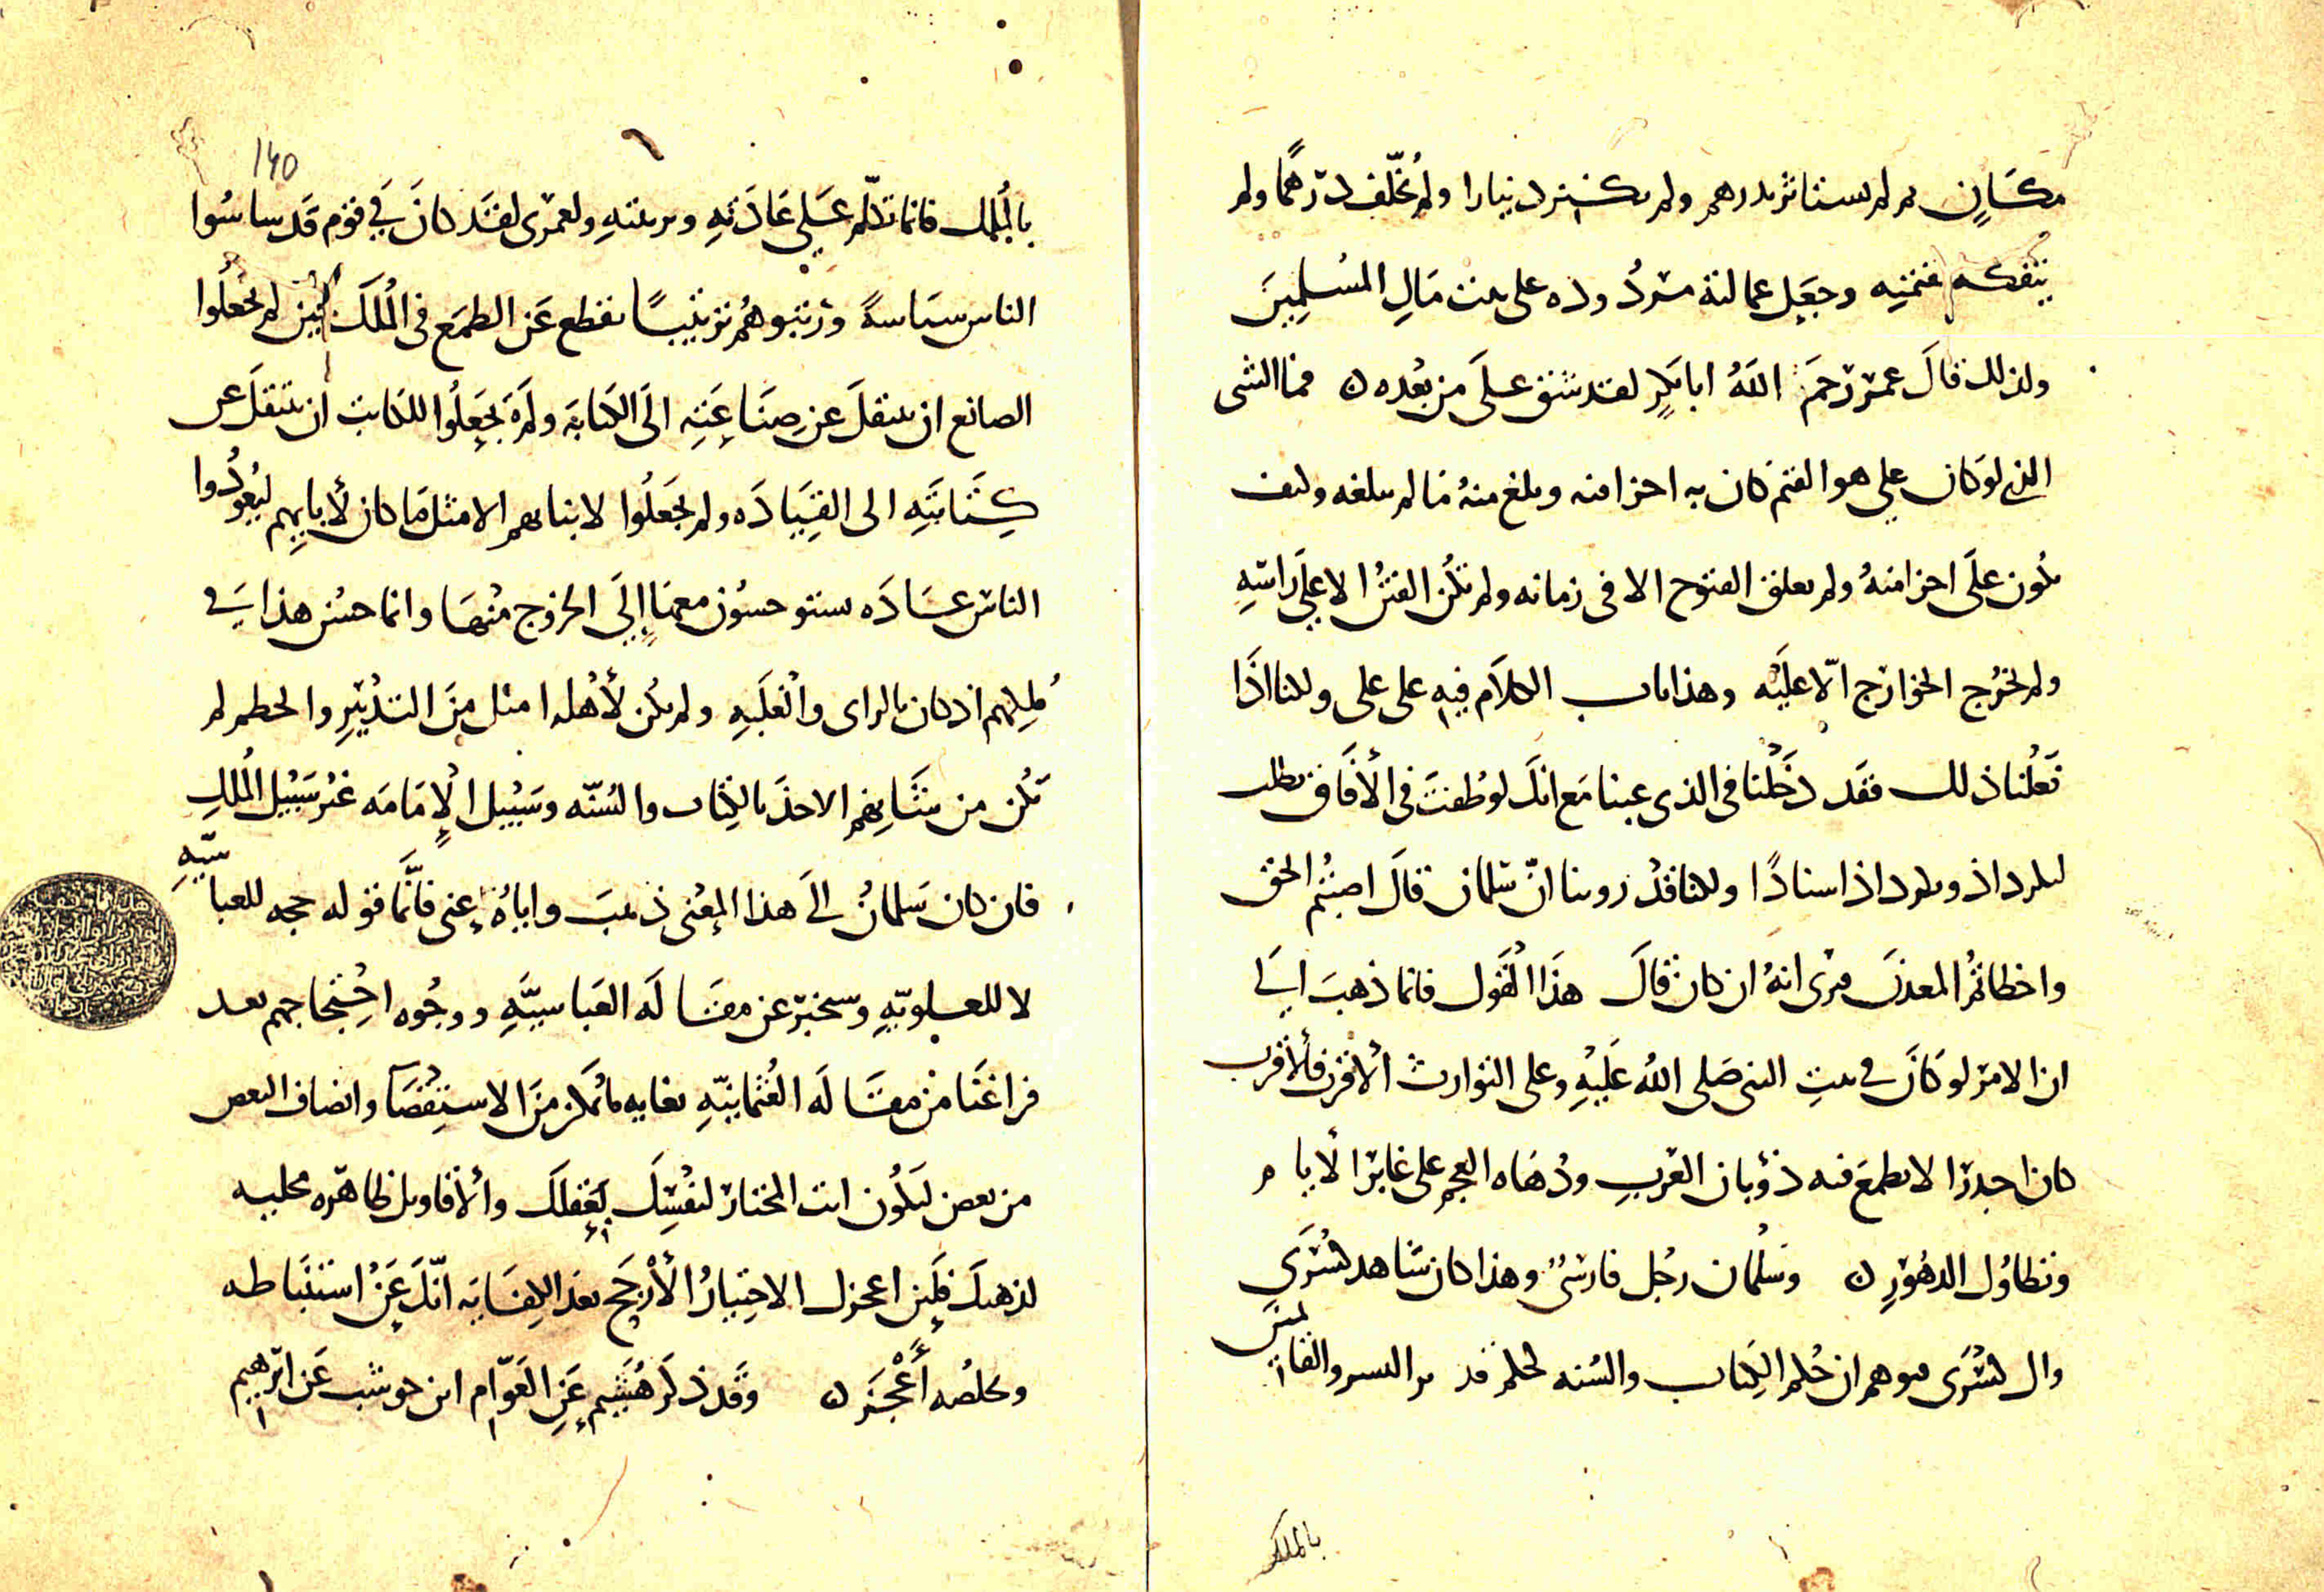 مكان لم لم يستاثر بدرهم ولم يكتنز دينارا ولم يخلف درهما ولم
يتفكه وجعل عمالته مردوده على بيت مال المسلمين
ولذلك قال عمر رحم الله ابا بكر لقد شق على من بعده فما الشى
الذى لو كان على هو القيم كان به احزا منه وبلغ منه ما لم يبلغه وكيف
يكون على احزا منه ولم يغلق الفتوح الا فى زمانه ولم تكن الفتن الا على راسه
ولم تخرج الخوارج الا عليه وهذا باب الكلام فيه على على ولكنا اذا
فعلنا ذلك فقد دخلنا فى الذى عبنا مع انك لو طفت فى الافاق تطلب
لكرداذ ونكرداذ اسنادا ولكنا قد روينا ان سلمان قال اصبتم الحق
واخطاتم المعدن فنرى انه ان كان قال هذا القول فانما ذهب الى
ان الامر لو كان فى بيت النبى صلى الله عليه وعلى التوارث الاقرب فالاقرب
كان اجدر الا يطمع فيه ذؤبان العرب ودهاه العجم على غابر الايام
وتطاول الدهور وسلمان رجل فارسى وهذا كان شاهد كسرى
وال كسرى فتوهم ان حكم الكتاب والسنه كحكم تدبير السر والقائمين
بالملك
140
بالملك فانما تكلم على عادته وتربيته ولعمرى لقد كان فى قوم قد ساسوا
الناس سياسة ورتبوهم ترتيبا يقطع عن الطمع فى الملك لم يجعلوا
الصانع ان ينتقل عن صناعته الى الكتابة ولم يجعلوا للكاتب ان ينتقل عن
كتابته الى القيادة ولم يجعلوا لابنايهم الا مثل ما كان لابايهم ليعودوا
الناس عادة يستوحشون معها الى الخروج منها وانما حسن هذا فى
ملكهم اذ كان بالراى والغلبه ولم يكن لاهله امثل من التدبير والحطم لم
تكن من شانهم الاخذ بالكتاب والسنه وسبيل الامامه غير سبيل الملك
فان كان سلمان الى هذا المعنى ذهب واياه عنى فانما قوله حجه للعباسيه
لا للعلويه وسنخبر عن مقالة العباسيه ووجوه احتجاجهم بعد
فراغنا من مقالة العثمانيه بغايه ما يمكن من الاستقصا وانصاف البعض
من بعض لتكون انت المختار لنفسك بعقلك والاقاويل ظاهره مجليه
لذهنك فلئن اعجزك الاختيار الارجح بعد الكفايه انك عن استنباطه
وتخلصه اعجز وقد ذكر هشيم عن العوام ابن حوشب عن ابرهيم